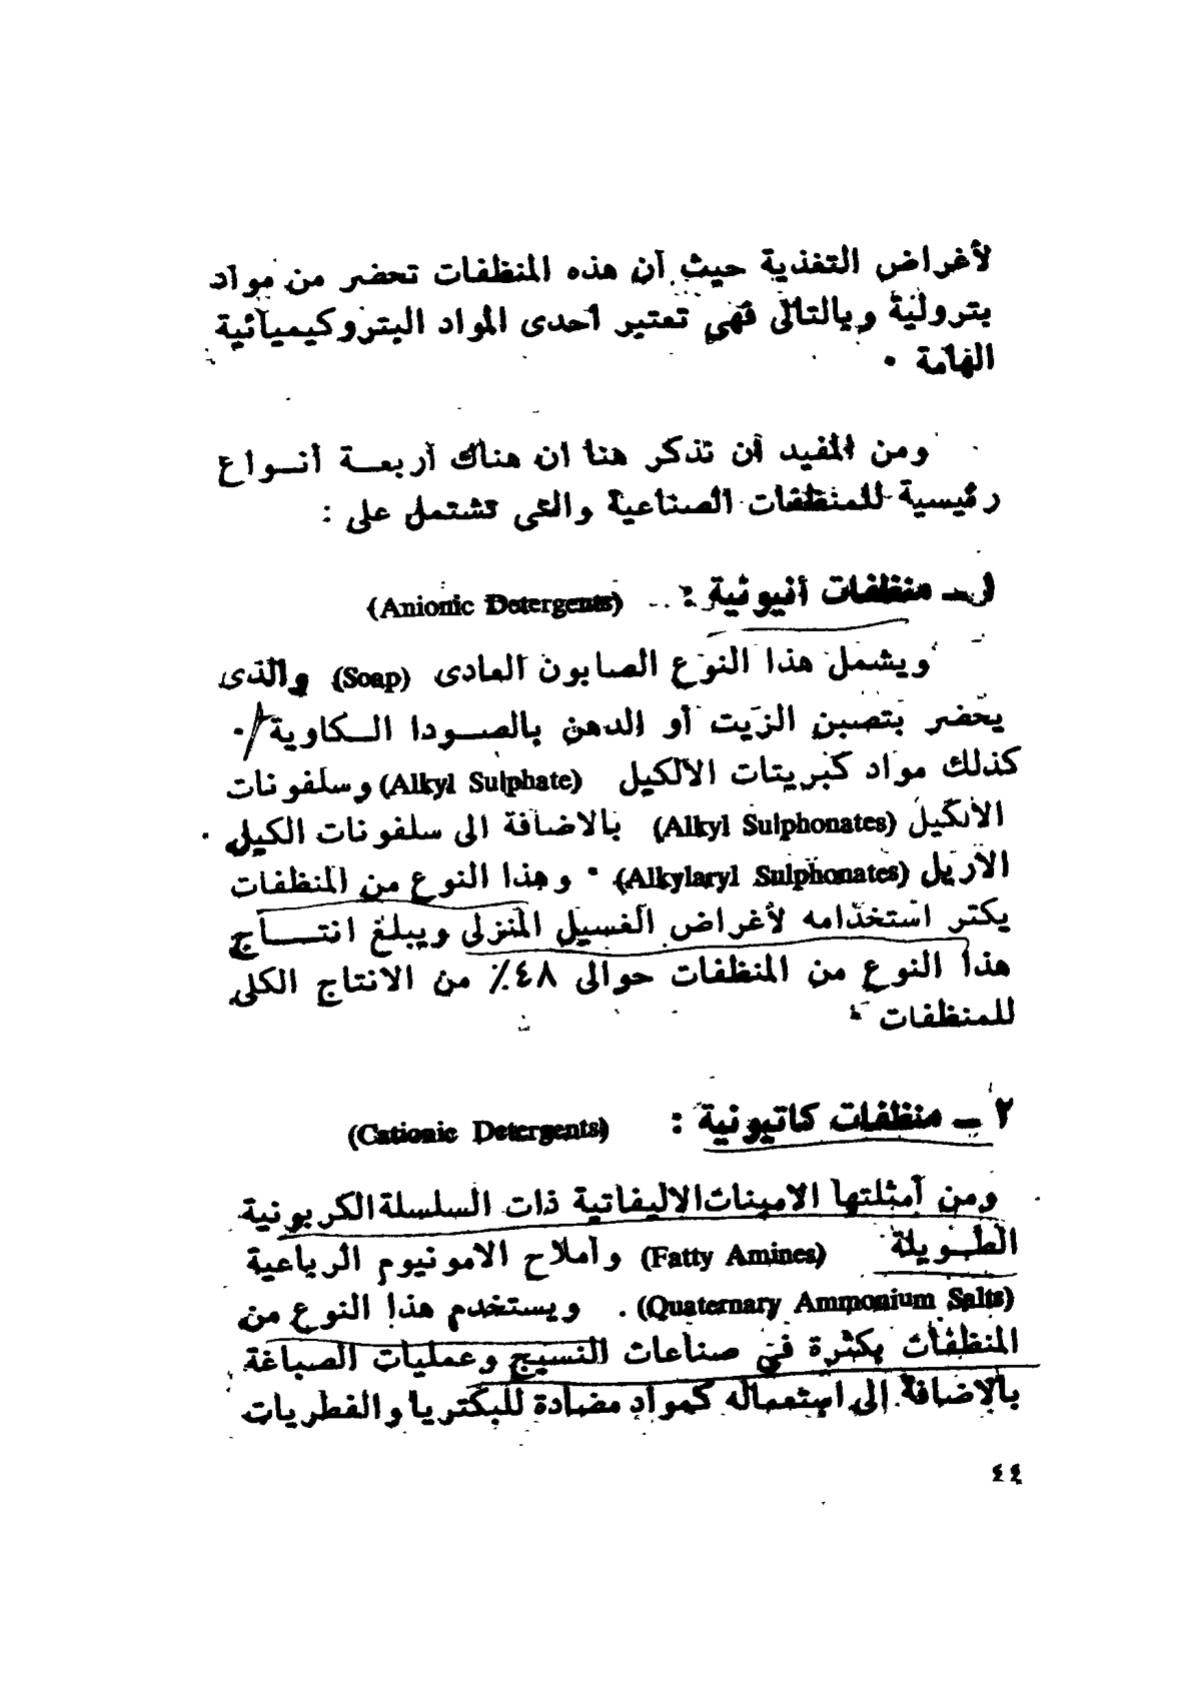 لأغراض التغذية حيث أن هذه المنظفات تحضر من مواد
بترولية وبالتالى فهى تعتبر أحدى المواد البتروكيميائية
الهامة .
ومن المفيد أن تذكر هنا ان هناك أربعــة أنــواع
رئيسية للمنظفات الصناعية والتى تشتمل على :
١ ــ منظفات أنيونية : (Anionic Detergents)
ويشمل هذا النوع الصابون العادى (Soap) والذى
يحضر بتصبن الزيت أو الدهن بالصــودا الــكاوية .
كذلك مواد كبريتات الألكيل (Alkyl Sulphate) وسلفونات
الألكيل (Alkyl Sulphonates) بالاضافة الى سلفونات الكيل
الأريل (Alkylaryl Sulphonates) . وهذا النوع من المنظفات
يكثر استخدامه لأغراض الغسيل المنزلى ويبلغ انتــــاج
هذا النوع من المنظفات حوالى ٤٨٪ من الانتاج الكلى
للمنظفات .
٢ ــ منظفات كاتيونية : (Cationic Detergents)
ومن أمثلتها الامينات الاليفاتية ذات السلسلة الكربونية
الطــويلة (Fatty Amines) وأملاح الامونيوم الرباعية
(Quaternary Ammonium Salts) . ويستخدم هذا النوع من
المنظفات بكثرة فى صناعات النسيج وعمليات الصباغة
بالاضافة الى استعماله كمواد مضادة للبكتريا والفطريات
٤٤